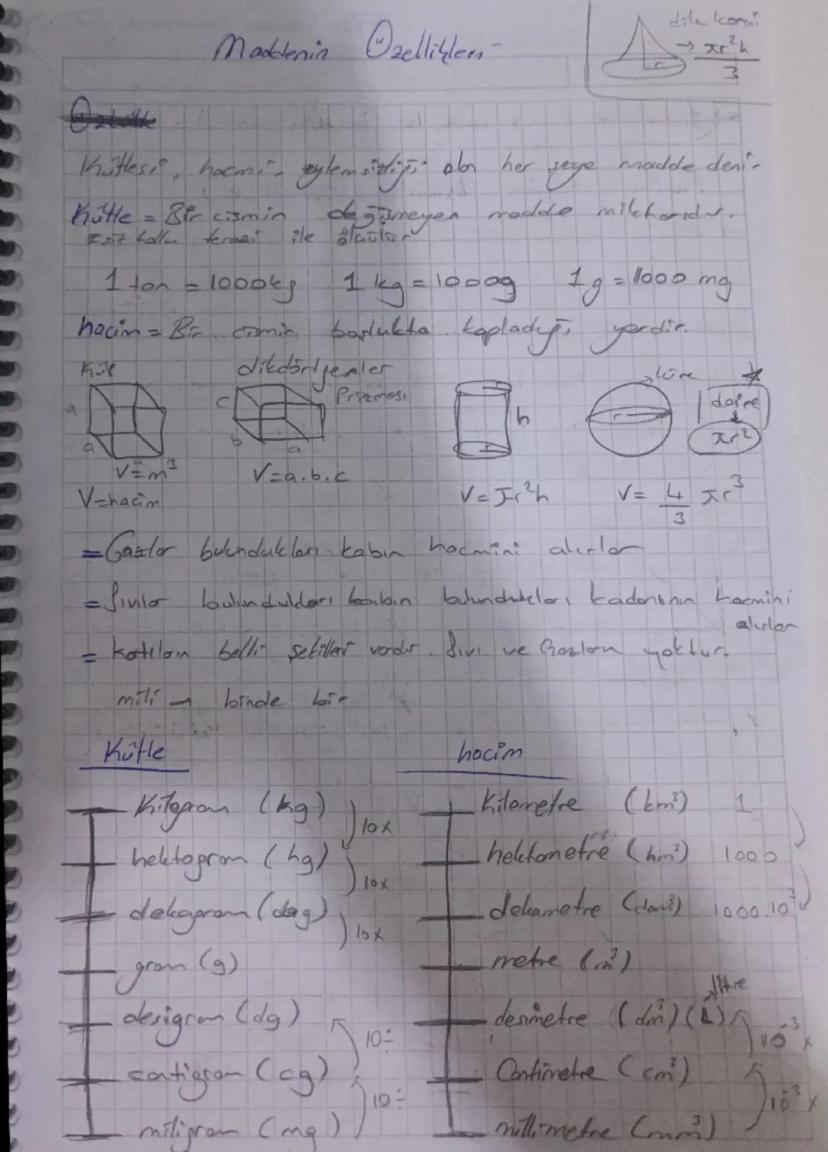 Maddenin Özellikleri
dik koni
→ πr²h
3
r
Kütlesi, hacmi, eylemsizliği olan her şeye madde denir
Kütle = Bir cismin değişmeyen madde miktarıdır.
Eşit kollu terazi ile ölçülür
1 ton = 1000kg 1 kg = 1000g 1g = 1000 mg
hacim = Bir cismin boşlukta kapladığı yerdir.
Küp
dikdörtgenler
Prizması
küre
a
a
c
b
a
h
r
daire
πr²
V = m³
V=hacim
V=a.b.c
V = πr²h
V = 4/3 πr³
= Gazlar bulundukları kabın hacmini alırlar
= Sıvılar bulundukları kabın bulundukları kadarının hacmini alırlar
= Katıların belli şekilleri vardır. Sıvı ve Gazların yoktur.
mili → binde bir
Kütle
Kilogram (kg)
10x
hektogram (hg)
10x
dekagram (dag)
10x
gram (g)
desigram (dg)
10÷
centigram (cg)
10÷
miligram (mg)
hacim
kilometre (km³) 1
hektometre (hm³) 1000
dekametre (dam³) 1000.10³
metre (m³)
litre
desimetre (dm³) (L)
10⁻³ x
Centimetre (cm³)
10⁻³ x
millimetre (mm³)